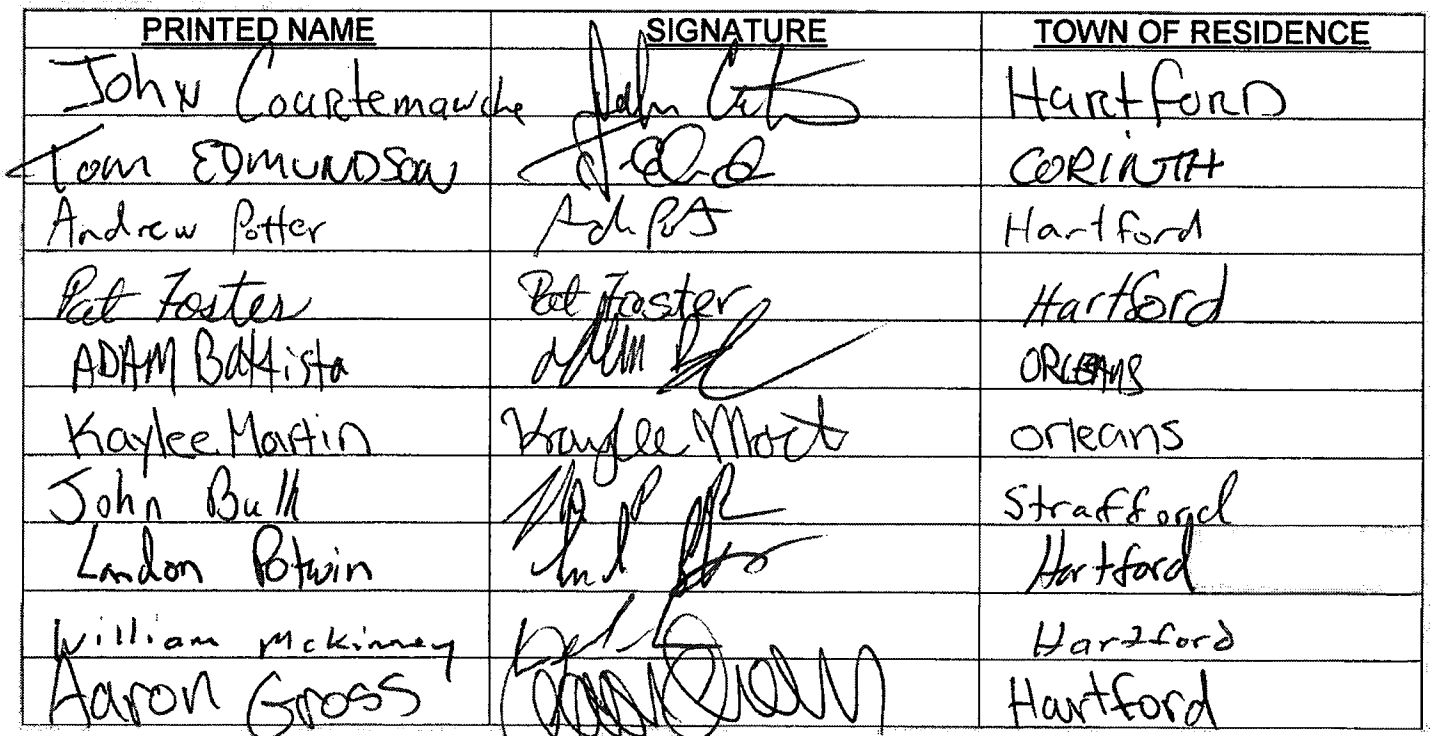 PRINTED NAME SIGNATURE TOWN OF RESIDENCE
John Courtemanche John Hartford
Tom EDMUNDSON CORINTH
Andrew Potter Hartford
Pat Foster Pat Foster Hartford
ADAM Battista ORLEANS
Kaylee Martin Kaylee orleans
John Bull Strafford
Landon Potwin Hartford
William McKinney Hartford
Aaron Gross Hartford